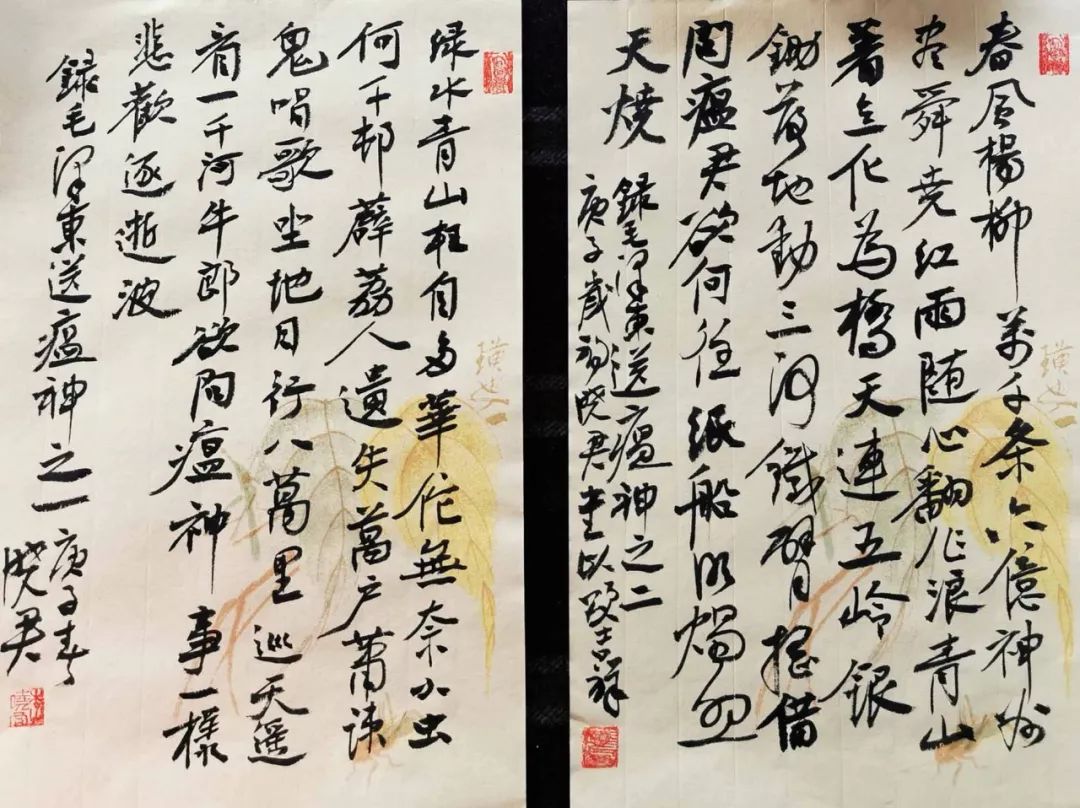 绿水青山枉自多華佗無奈小虫
何千邨薜荔人遺失萬户萧疎
鬼唱歌坐地日行八萬里巡天遥
看一千河牛郎欲问瘟神事一樣
悲歡逐逝波
録毛澤東送瘟神之一
庚子春
晓君
春风楊柳万千条六億神州
尽舜尧红雨随心翻作浪青山
着意化為橋天連五岭銀
鋤落地動三河鐵臂摇借
问瘟君欲何往纸船明燭照
天燒
録毛澤東送瘟神之二
庚子歲初晓君書以頌吉祥